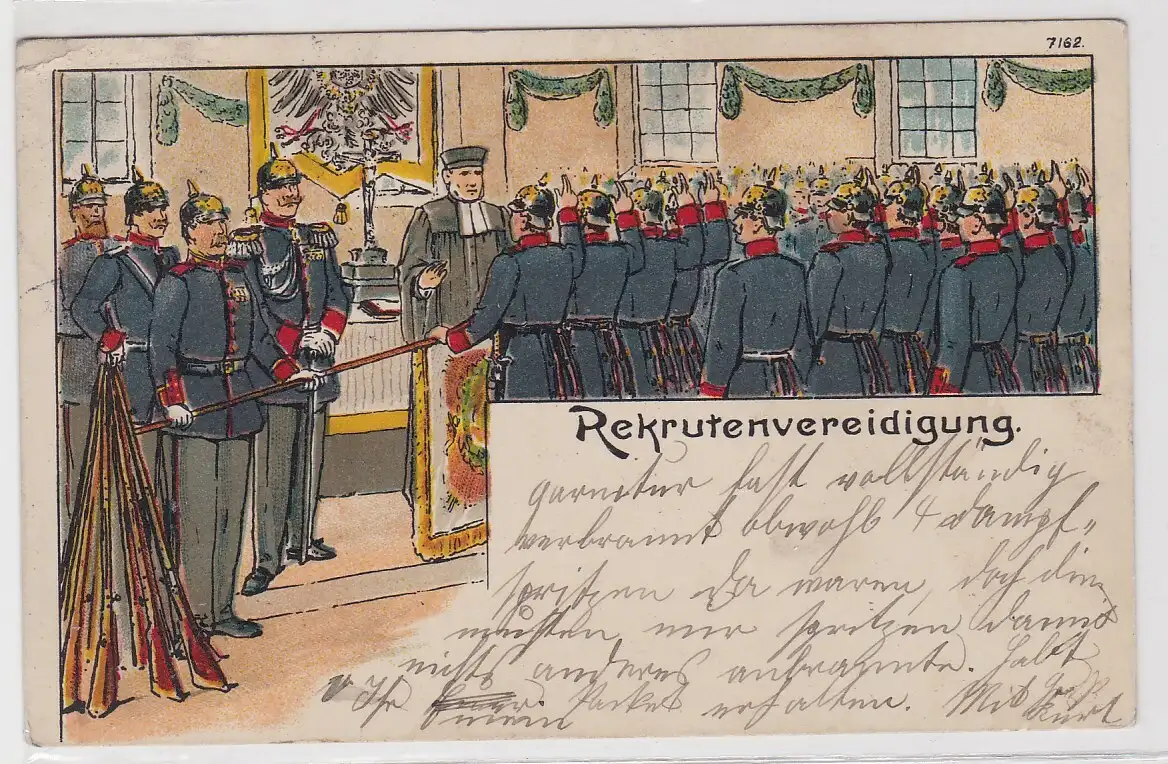 7162.
Rekrutenvereidigung.
garnitur fast vollständig
verbrannt obwohl 4 Dampf-
spritzen da waren, doch die
mußten nur spritzen damit
nichts anderes anbrannte. Habt
Ihr mein Packet erhalten. Mit Gruß
Kurt